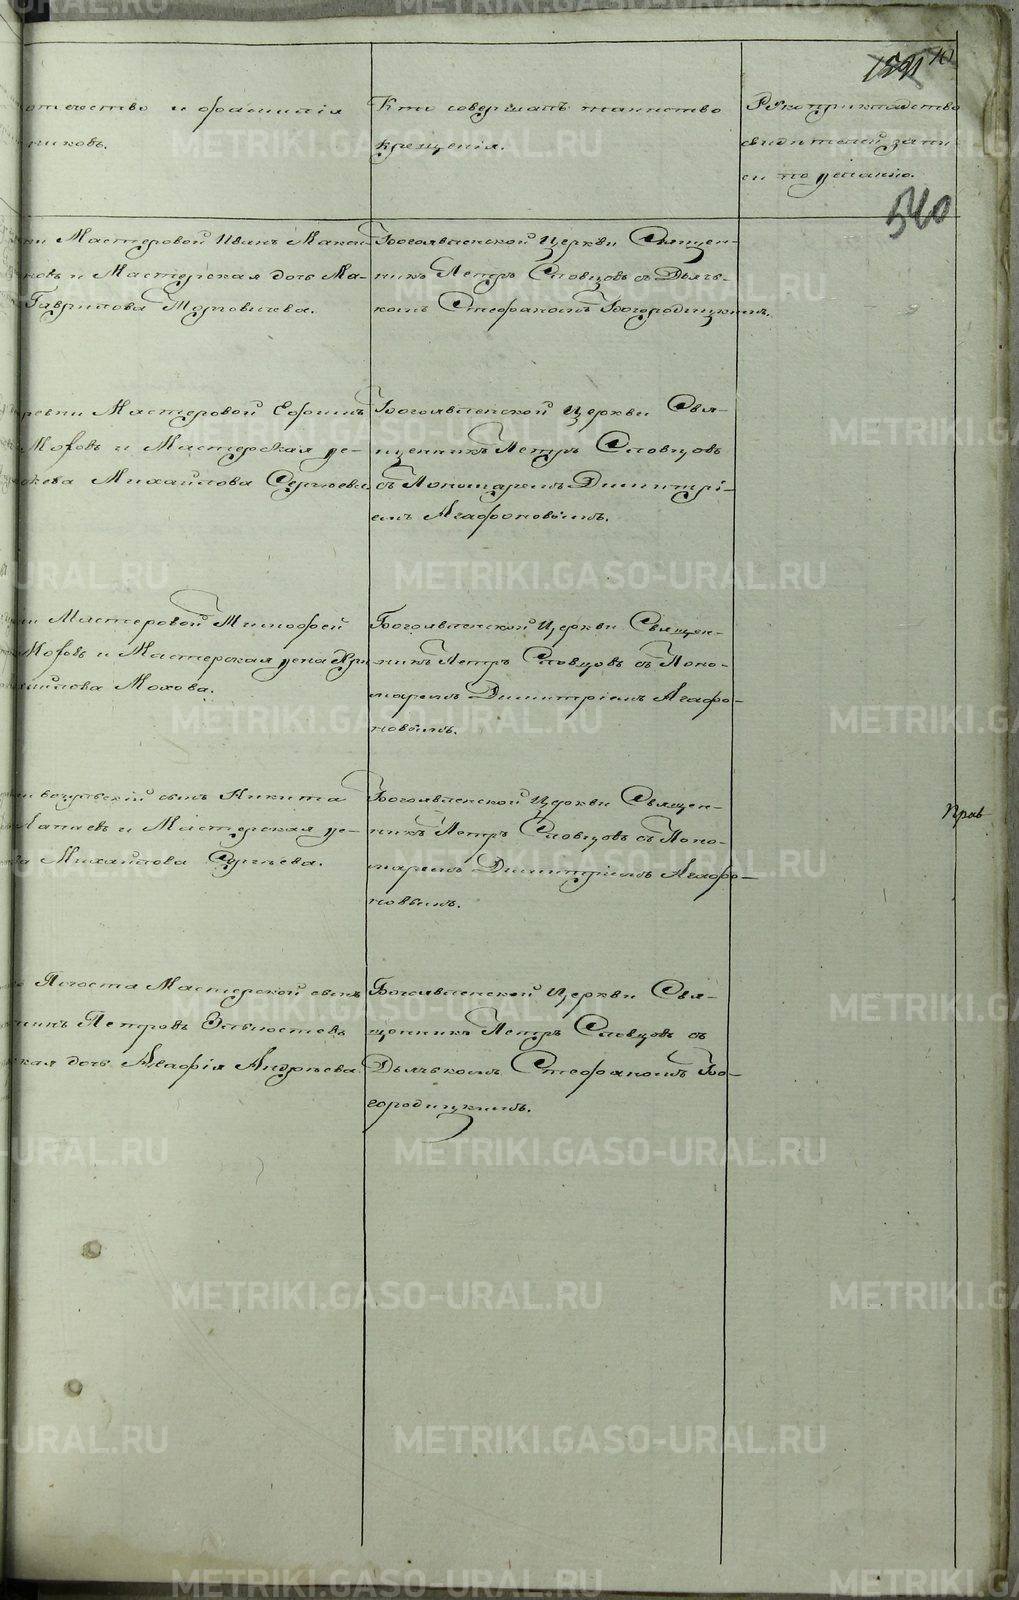 540
отчество и фамилія
никовъ.
Кто совершалъ таинство
крещенія.
Рукоприкладство
свидѣтелей запи-
си по желанію.
Мастеровой Иванъ Макси-
ковъ и Мастерская дочь Ма-
Гаврилова
Богоявленской Церкви Священ-
никъ Петръ Словцовъ съ Дьяч-
комъ Стефаномъ Богородицкимъ.
ревни Мастеровой Ефимъ
Мохова и Мастерская же-
Михайлова Сергѣева
Богоявленской Церкви Свя-
щенникъ Петръ Словцовъ
съ Пономаремъ Димитрі-
емъ Агафоновымъ.
Мастеровой Тимофей
и Мастерская жена
Мохова.
Богоявленской Церкви Священ-
никъ Петръ Словцовъ съ Поно-
маремъ Димитріемъ Агафо-
новымъ.
сынъ Никита
и Мастерская же-
Михайлова Сергѣева.
Богоявленской Церкви Священ-
никъ Петръ Словцовъ съ Поно-
маремъ Димитріемъ Агафо-
новымъ.
Погоста Мастерской сынъ
Петровъ
кая дочь Агафія Андреева
Богоявленской Церкви Свя-
щенникъ Петръ Словцовъ съ
Дьячкомъ Стефаномъ Бо-
городицкимъ.
METRIKI.GASO-URAL.RU